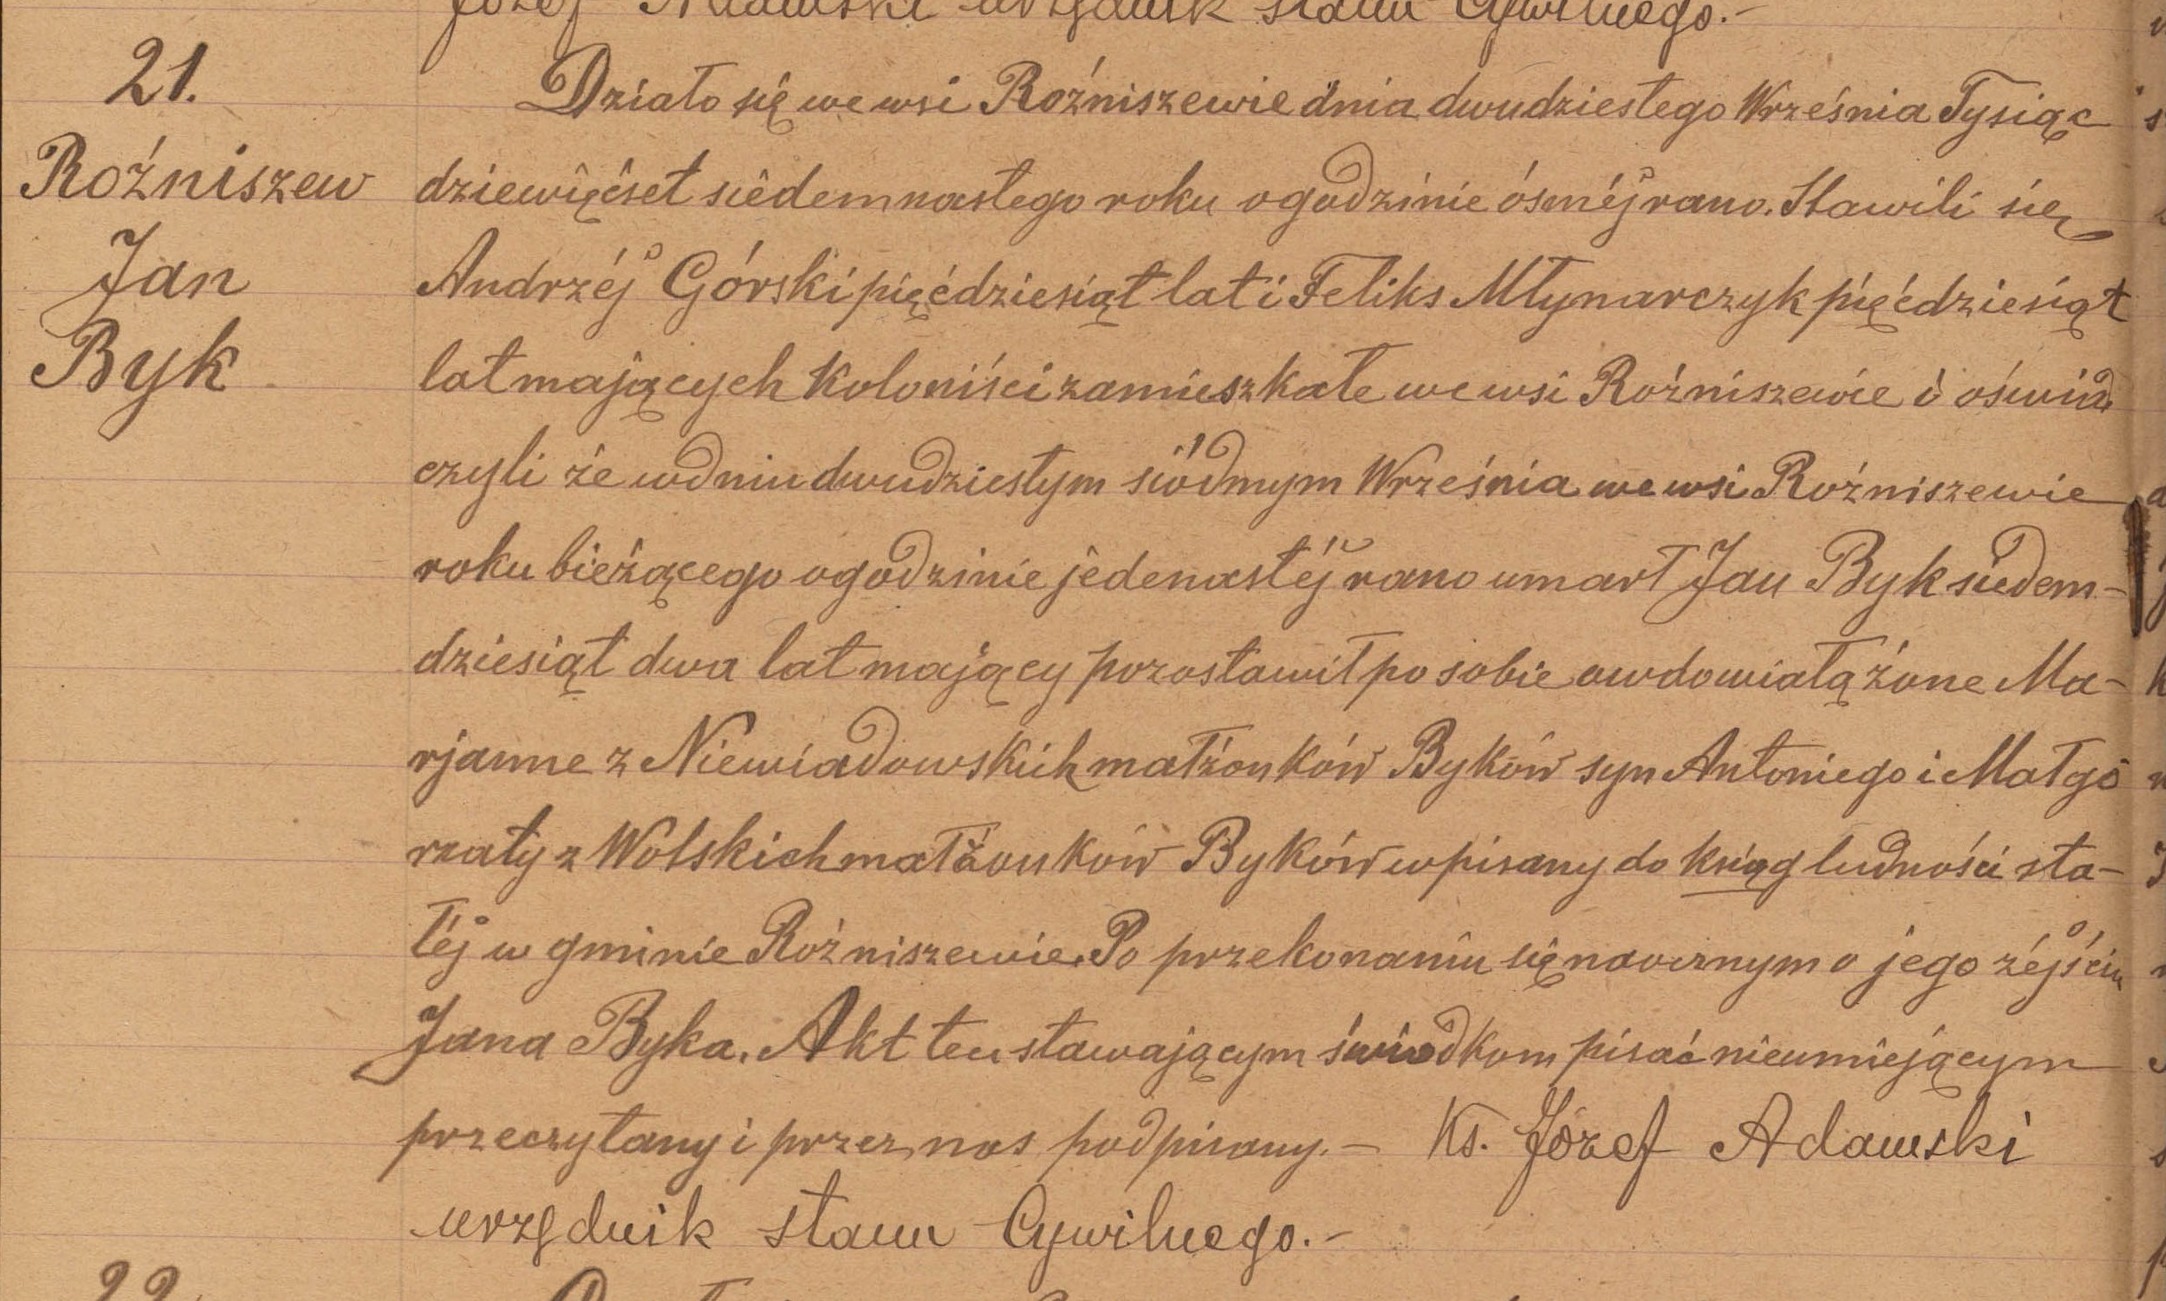 Józef Adamski urzędnik stanu Cywilnego.-
21.
Roźniszew
Jan
Byk
Działo się we wsi Roźniszewie dnia dwudziestego Września Tysiąc
dziewięćset siedemnastego roku o godzinie ósméj rano. Stawili się
Andrzéj Górski pięćdziesiąt lat i Feliks Młynarczyk pięćdziesiąt
lat mających koloniści zamieszkałe we wsi Roźniszewie i oświad
czyli że w dniu dwudziestym siódmym Września we wsi Roźniszewie
roku bieżącego o godzinie jedenastéj rano umarł Jan Byk siedem-
dziesiąt dwa lat mający pozostawił po sobie owdowiałą żone Ma-
rjanne z Niewiadowskich małżonków Byków syn Antoniego i Małgo
rzaty z Wolskich małżonków Byków wpisany do ksiąg ludności sta-
łéj w gminie Roźniszewie. Po przekonaniu się naocznym o jego zéjściu
Jana Byka. Akt ten stawającym świadkom pisać nieumiejącym
przeczytany i przez nas podpisany.- Ks. Józef Adamski
urzędnik stanu Cywilnego.-
22.